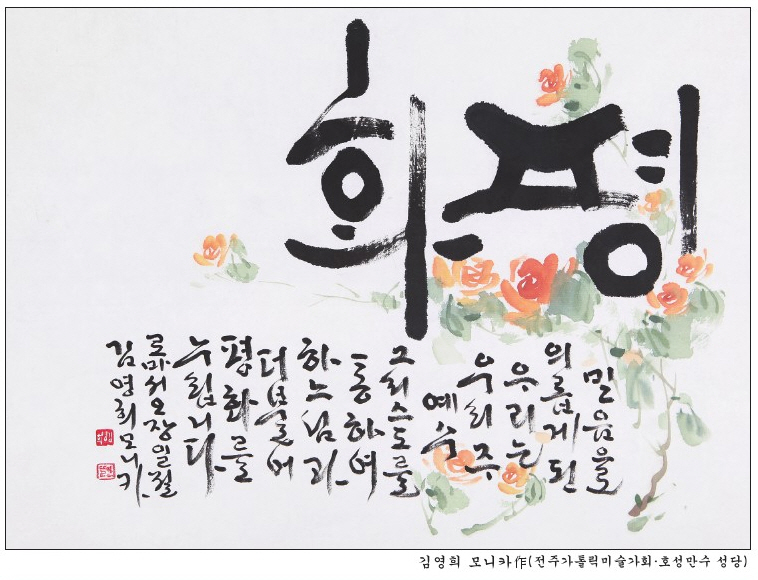 평화
믿음으로
의롭게 된
우리는
우리 주
예수
그리스도를
통하여
하느님과
더불어
평화를
누립니다.
로마서 오장 일절
김영희 모니카
김영희 모니카作(전주가톨릭미술가회·호성만수 성당)